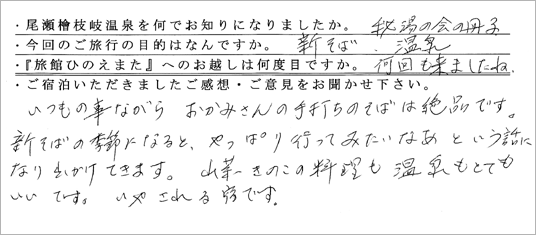 ・尾瀬檜枝岐温泉を何でお知りになりましたか。 秘湯の会の冊子
・今回のご旅行の目的はなんですか。 新そば、温泉
・『旅館ひのえまた』へのお越しは何度目ですか。 何回も来ましたね。
・ご宿泊いただきましたご感想・ご意見をお聞かせ下さい。
いつもの事ながら おかみさんの手打ちのそばは絶品です。
新そばの季節になると、やっぱり行ってみたいなあ という話に
なり出かけてきます。 山菜・きのこの料理も 温泉もとても
いいです。 いやされる宿です。